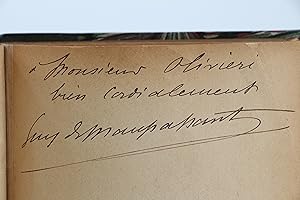 à Monsieur Olivieri
bien cordialement
Guy de Maupassant